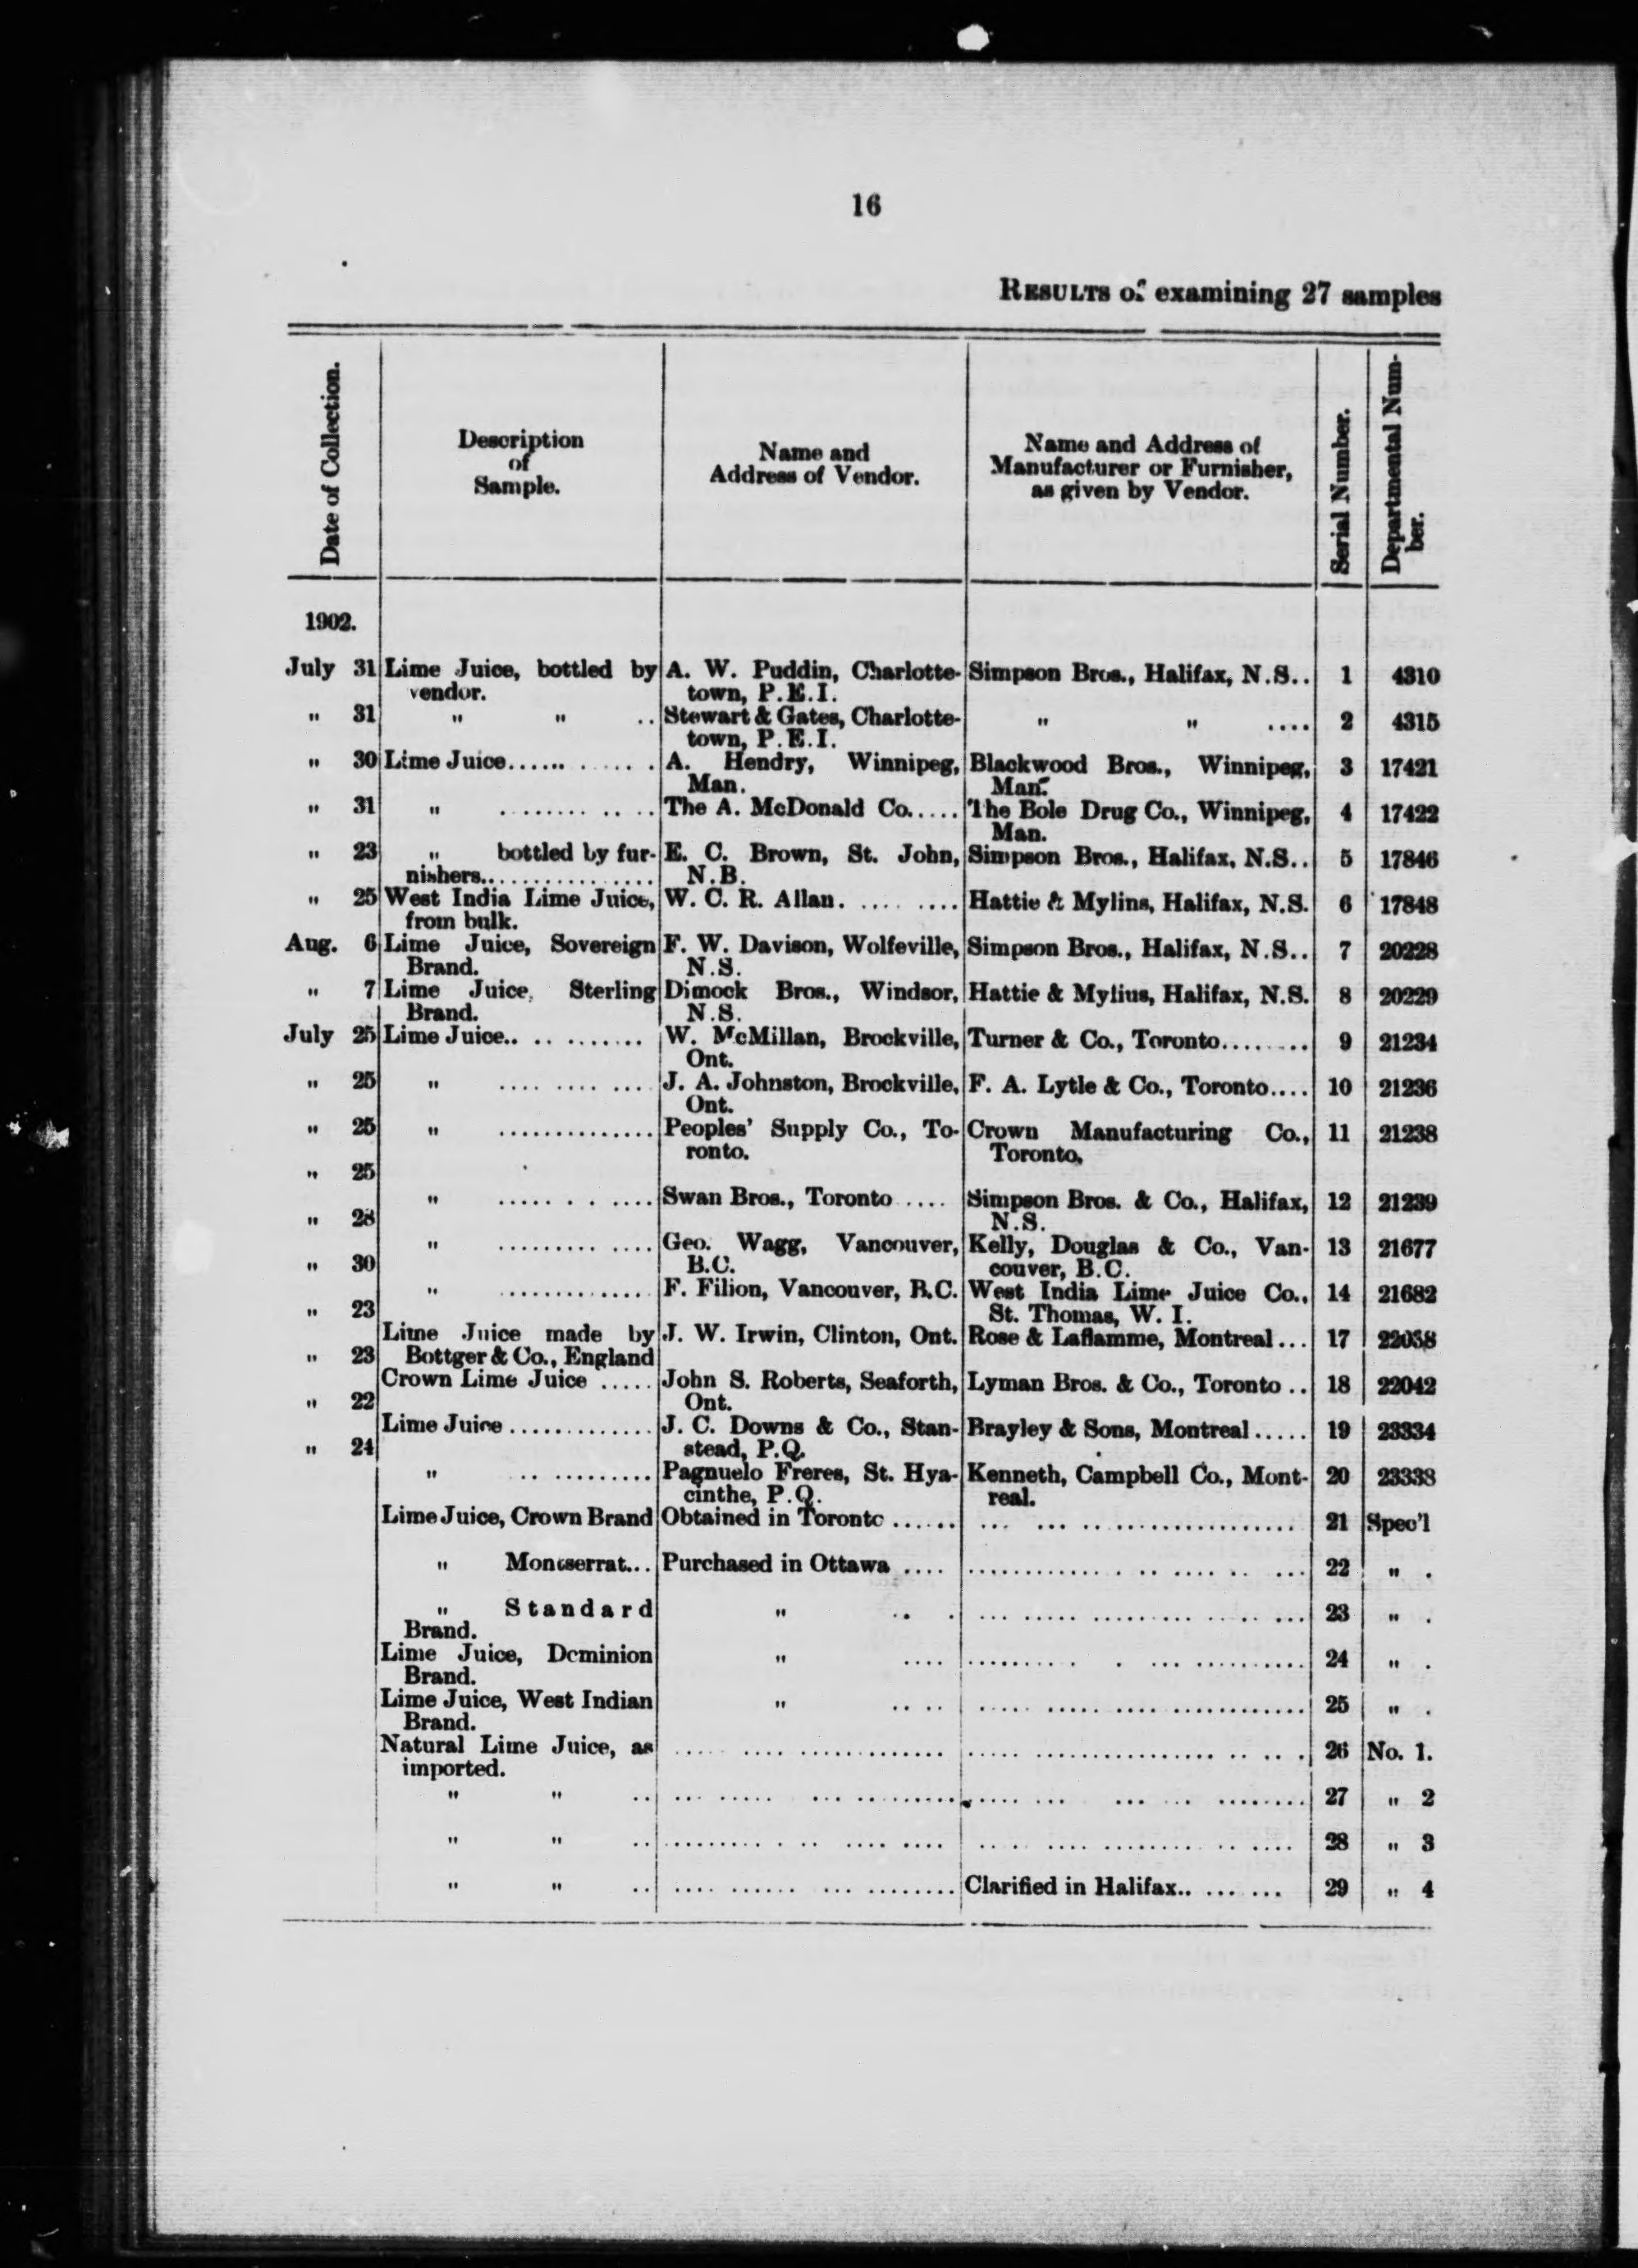 16
RESULTS of examining 27 samples
Date of Collection.
Description
of
Sample.
Name and
Address of Vendor.
Name and Address of
Manufacturer or Furnisher,
as given by Vendor.
Serial Number.
Departmental Num-
ber.
1902.
July 31 Lime Juice, bottled by A. W. Puddin, Charlotte- Simpson Bros., Halifax, N.S.. 1 4310
vendor. town, P.E.I.
" 31 " " .. Stewart & Gates, Charlotte- " " .... 2 4315
town, P.E.I.
" 30 Lime Juice............ A. Hendry, Winnipeg, Blackwood Bros., Winnipeg, 3 17421
Man. Man.
" 31 " ............ The A. McDonald Co..... The Bole Drug Co., Winnipeg, 4 17422
Man.
" 23 " bottled by fur- E. C. Brown, St. John, Simpson Bros., Halifax, N.S.. 5 17846
nishers................ N.B.
" 25 West India Lime Juice, W. C. R. Allan. ......... Hattie & Mylins, Halifax, N.S. 6 17848
from bulk.
Aug. 6 Lime Juice, Sovereign F. W. Davison, Wolfeville, Simpson Bros., Halifax, N.S.. 7 20228
Brand. N.S.
" 7 Lime Juice, Sterling Dimock Bros., Windsor, Hattie & Mylius, Halifax, N.S. 8 20229
Brand. N.S.
July 25 Lime Juice.. .......... W. McMillan, Brockville, Turner & Co., Toronto........ 9 21234
Ont.
" 25 " ............ J. A. Johnston, Brockville, F. A. Lytle & Co., Toronto.... 10 21236
Ont.
" 25 " .............. Peoples' Supply Co., To- Crown Manufacturing Co., 11 21238
ronto. Toronto,
" 25
" ............ Swan Bros., Toronto .... Simpson Bros. & Co., Halifax, 12 21239
" 28 N.S.
" ............. Geo. Wagg, Vancouver, Kelly, Douglas & Co., Van- 13 21677
" 30 B.C. couver, B.C.
" .............. F. Filion, Vancouver, B.C. West India Lime Juice Co., 14 21682
" 23 St. Thomas, W. I.
Lime Juice made by J. W. Irwin, Clinton, Ont. Rose & Laflamme, Montreal... 17 22038
" 23 Bottger & Co., England
Crown Lime Juice ..... John S. Roberts, Seaforth, Lyman Bros. & Co., Toronto .. 18 22042
" 22 Ont.
Lime Juice ............. J. C. Downs & Co., Stan- Brayley & Sons, Montreal ..... 19 23334
" 24 stead, P.Q.
" ............ Pagnuelo Freres, St. Hya- Kenneth, Campbell Co., Mont- 20 23338
cinthe, P.Q. real.
Lime Juice, Crown Brand Obtained in Toronto ...... .............................. 21 Spec'l
" Montserrat... Purchased in Ottawa .... .............................. 22 " .
" Standard " .. . .............................. 23 " .
Brand.
Lime Juice, Dominion " .... .............................. 24 " .
Brand.
Lime Juice, West Indian " .... .............................. 25 " .
Brand.
Natural Lime Juice, as ........................ .............................. 26 No. 1.
imported.
" " .. ........................ .............................. 27 " 2
" " .. ........................ .............................. 28 " 3
" " .. ........................ Clarified in Halifax.. ....... 29 " 4